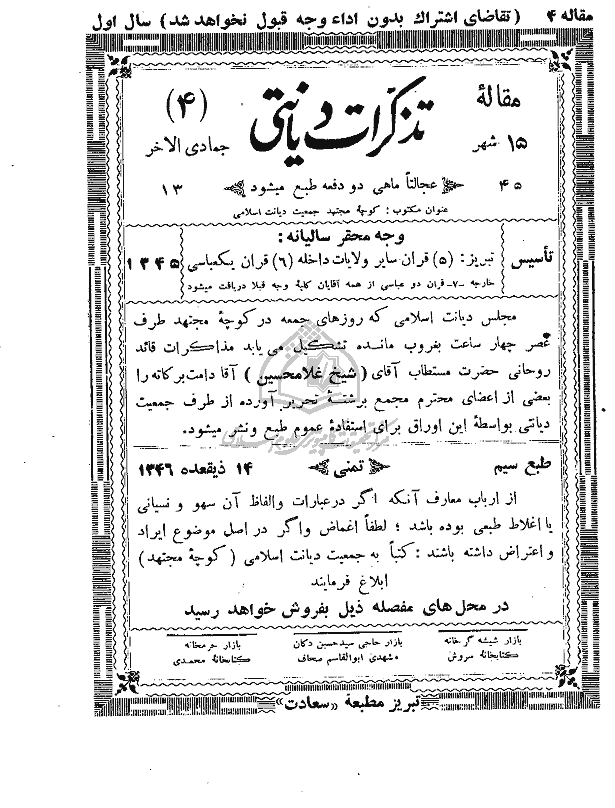 مقاله ۴ ( تقاضای اشتراك بدون اداء وجه قبول نخواهد شد ) سال اول
مقالهٔ تذكرات دیانتی (۴)
۱۵ شهر جمادی الاخر
۴۵ عجالتاً ماهی دو دفعه طبع میشود ۱۳
عنوان مكتوب : كوچهٔ مجتهد جمعیت دیانت اسلامی
وجه محقر سالیانه :
تأسیس تبریز : (۵) قران سایر ولایات داخله (۶) قران یكعباسی ۱۳۴۵
خارجه -۷- قران دو عباسی از همه آقایان كلیهٔ وجه قبلا دریافت میشود
مجلس دیانت اسلامی كه روزهای جمعه در كوچهٔ مجتهد طرف
عصر چهار ساعت بغروب مانده تشكیل می یابد مذاكرات قائد
روحانی حضرت مستطاب آقای ( شیخ غلامحسین ) آقا دامت بركاته را
بعضی از اعضای محترم مجمع برشتهٔ تحریر آورده از طرف جمعیت
دیانی بواسطهٔ این اوراق برای استفادهٔ عموم طبع و نشر میشود.
طبع سیم تمنی ۱۴ ذیقعده ۱۳۴۶
از ارباب معارف آنكه اگر درعبارات والفاظ آن سهو و نسیانی
یا اغلاط طبعی بوده باشد ؛ لطفاً اغماض واگر در اصل موضوع ایراد
و اعتراض داشته باشند : كتباً به جمعیت دیانت اسلامی ( كوچهٔ مجتهد )
ابلاغ فرمایند
در محل های مفصله ذیل بفروش خواهد رسید
بازار شیشه گر خانه بازار حاجی سیدحسین دكان بازار حرمخانه
كتابخانهٔ سروش مشهدی ابوالقاسم صحاف كتابخانهٔ محمدی
تبریز مطبعهٔ «سعادت»